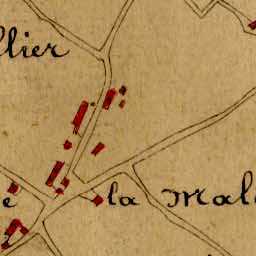 llier
e la Mal